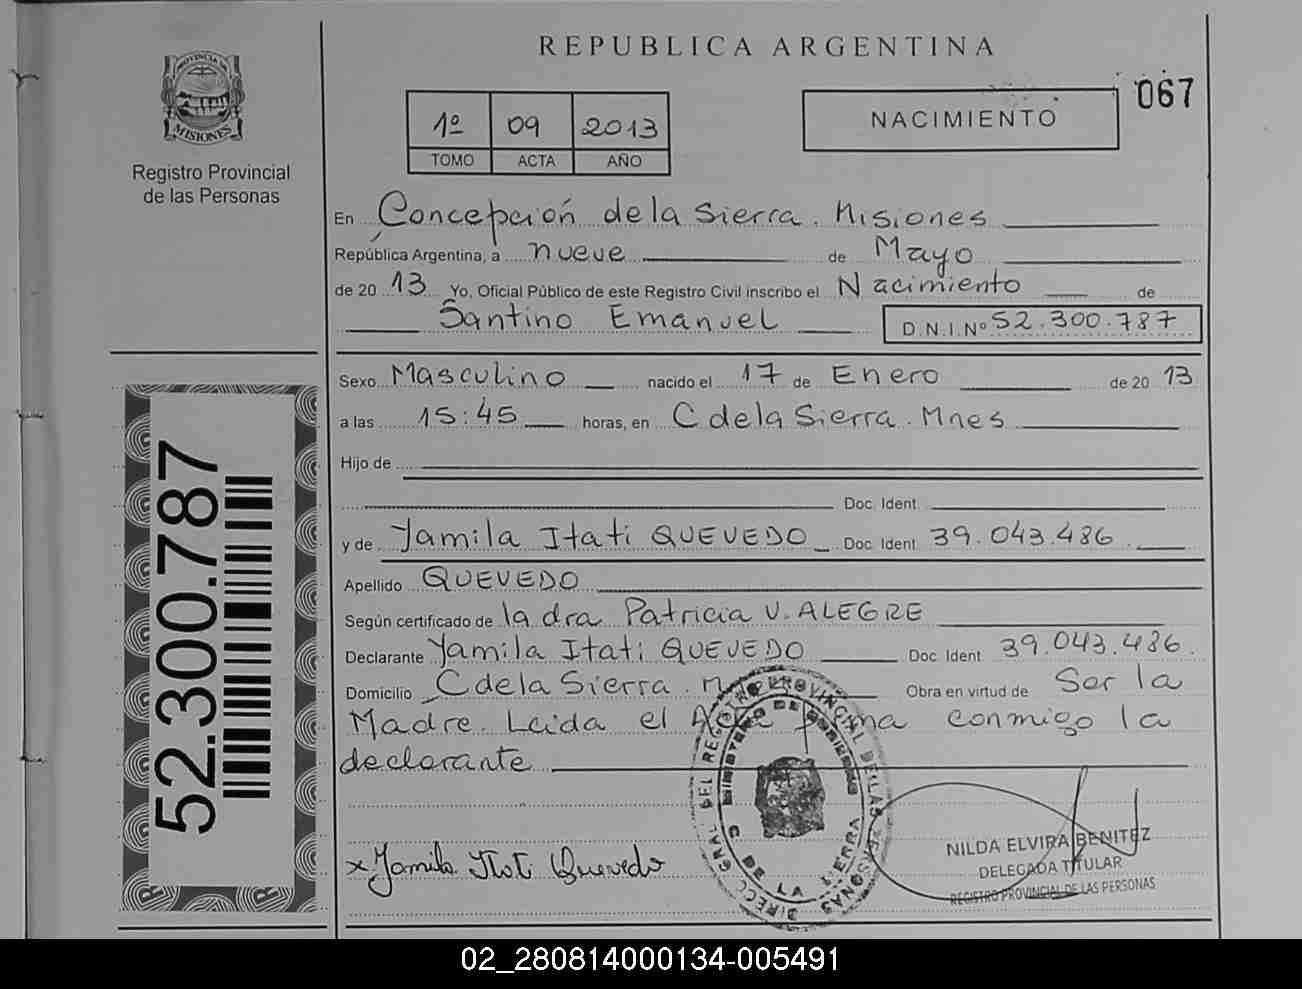 REPUBLICA ARGENTINA
PROVINCIA DE
MISIONES
Registro Provincial
de las Personas
1º 09 2013
TOMO ACTA AÑO
NACIMIENTO
067
En Concepción de la Sierra. Misiones
República Argentina, a nueve de Mayo
de 20 13 Yo, Oficial Público de este Registro Civil inscribo el Nacimiento de
Santino Emanuel D.N.I.Nº 52.300.787
Sexo Masculino nacido el 17 de Enero de 20 13
a las 15:45 horas, en C de la Sierra. Mnes
Hijo de
Doc. Ident.
y de Yamila Itati QUEVEDO Doc. Ident. 39.043.486
Apellido QUEVEDO
Según certificado de la dra Patricia V. ALEGRE
Declarante Yamila Itati QUEVEDO Doc. Ident. 39.043.486.
Domicilio C de la Sierra. Obra en virtud de Ser la
Madre. Leida el Acta firma conmigo la
declarante
52.300.787
x Yamila Itati Quevedo
DIRECC. GRAL. DEL REGISTRO PROVINCIAL DE LAS PERSONAS
MINISTERIO DE GOBIERNO
C. DE LA SIERRA
NILDA ELVIRA BENITEZ
DELEGADA TITULAR
REGISTRO PROVINCIAL DE LAS PERSONAS
02_280814000134-005491